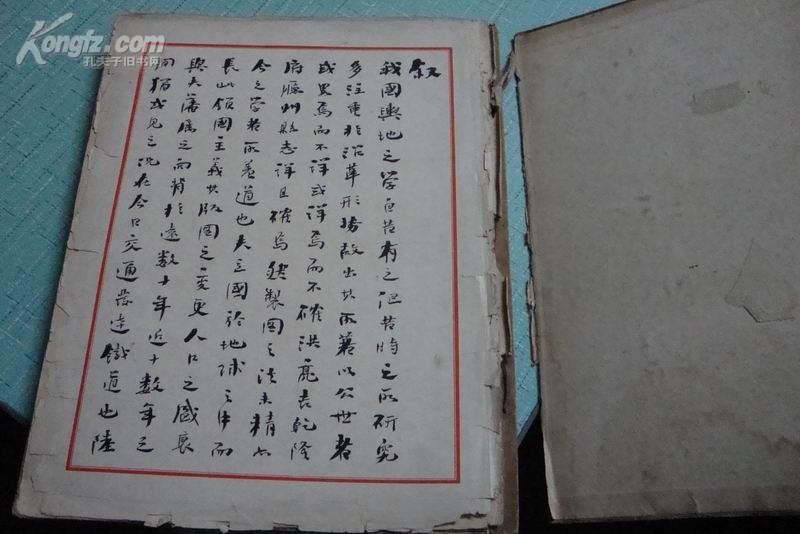 Kongfz.com
孔夫子旧书网
叙
我國輿地之学自昔有之但昔時之所研究
多注重於沿革形勝故出其所著以公世者
或畧焉而不詳或詳焉而不確洪亮吉乾隆
府廳州縣志詳且確焉然製圖之法未精
今之学者所羞道也夫立國於地球之中而
長此領國主義其版圖之變更人口之盛衰
與夫藩属之向背於遠數十年近十數年之
間猶或見之況在今日交通發達鐵道也陸